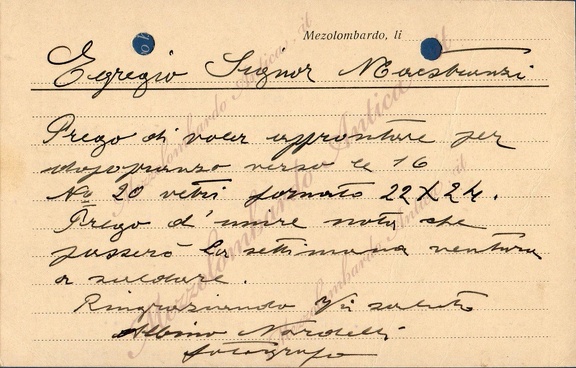 Mezolombardo, li
Egregio Signor Maestranzi
Prego di voler approntare per
dopopranzo verso le 16
No 20 vetri formato 22X24.
Prego d'unire nota che
passerò la settimana ventura
a saldare.
Ringraziando Vi saluto
Albino Nardelli
fotografo
Mezzolombardo Antica .it